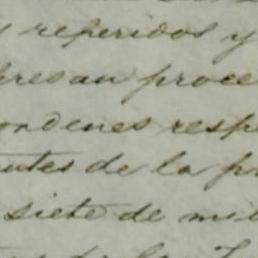 s referidos y
presan proce
ordenes resp
antes de la pr
siete de mil